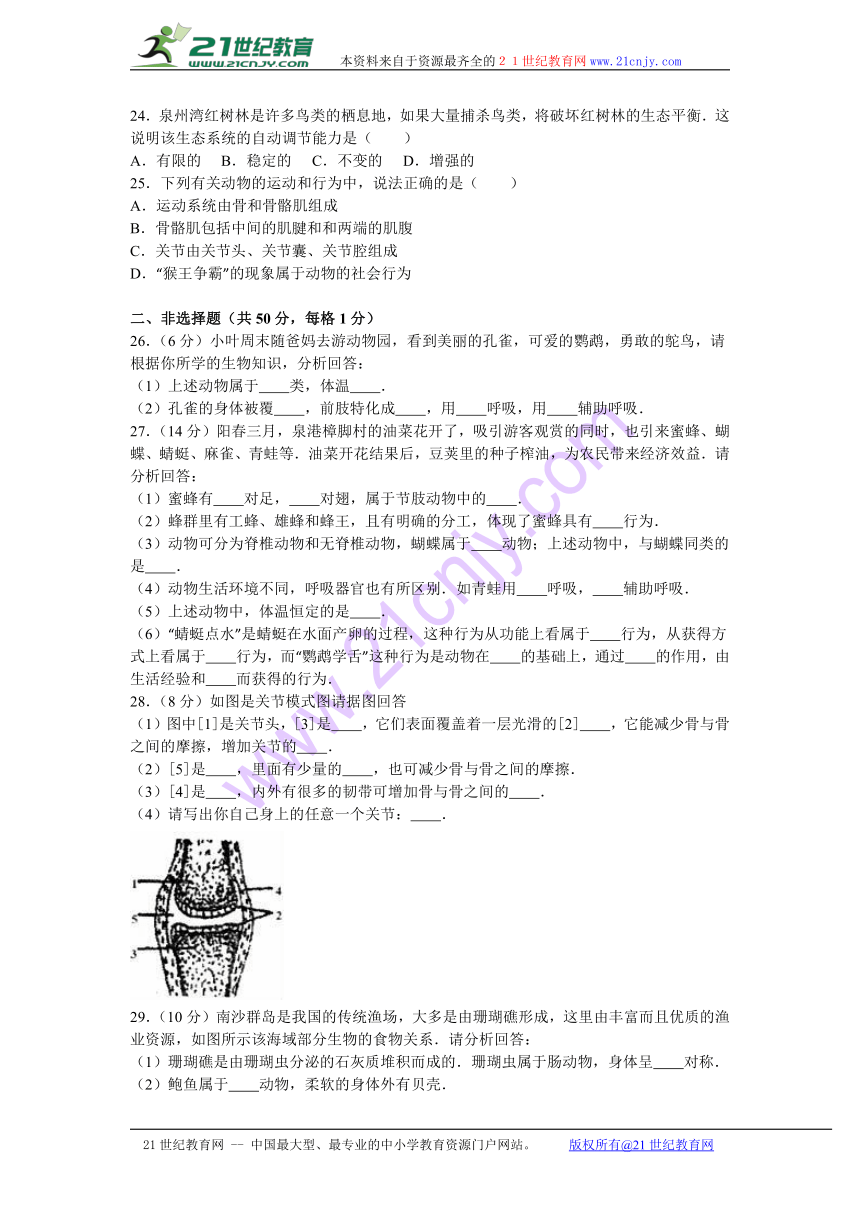 21世纪教育
www.21cnjy.com
本资料来自于资源最齐全的２１世纪教育网www.21cnjy.com
24．泉州湾红树林是许多鸟类的栖息地，如果大量捕杀鸟类，将破坏红树林的生态平衡．这
说明该生态系统的自动调节能力是（　　）
A．有限的 B．稳定的 C．不变的 D．增强的
25．下列有关动物的运动和行为中，说法正确的是（　　）
A．运动系统由骨和骨骼肌组成
B．骨骼肌包括中间的肌腱和和两端的肌腹
C．关节由关节头、关节囊、关节腔组成
D．“猴王争霸”的现象属于动物的社会行为
二、非选择题（共50分，每格1分）
26．（6分）小叶周末随爸妈去游动物园，看到美丽的孔雀，可爱的鹦鹉，勇敢的鸵鸟，请
根据你所学的生物知识，分析回答：
（1）上述动物属于____类，体温____．
（2）孔雀的身体被覆____，前肢特化成____，用____呼吸，用____辅助呼吸．
27．（14分）阳春三月，泉港樟脚村的油菜花开了，吸引游客观赏的同时，也引来蜜蜂、蝴
蝶、蜻蜓、麻雀、青蛙等．油菜开花结果后，豆荚里的种子榨油，为农民带来经济效益．请
分析回答：
（1）蜜蜂有____对足，____对翅，属于节肢动物中的____．
（2）蜂群里有工蜂、雄蜂和蜂王，且有明确的分工，体现了蜜蜂具有____行为．
（3）动物可分为脊椎动物和无脊椎动物，蝴蝶属于____动物；上述动物中，与蝴蝶同类的
是____．
（4）动物生活环境不同，呼吸器官也有所区别．如青蛙用____呼吸，____辅助呼吸．
（5）上述动物中，体温恒定的是____．
（6）“蜻蜓点水”是蜻蜓在水面产卵的过程，这种行为从功能上看属于____行为，从获得方
式上看属于____行为，而“鹦鹉学舌”这种行为是动物在____的基础上，通过____的作用，由
生活经验和____而获得的行为．
28．（8分）如图是关节模式图请据图回答
（1）图中[1]是关节头，[3]是____，它们表面覆盖着一层光滑的[2]____，它能减少骨与骨
之间的摩擦，增加关节的____．
（2）[5]是____，里面有少量的____，也可减少骨与骨之间的摩擦．
（3）[4]是____，内外有很多的韧带可增加骨与骨之间的____．
（4）请写出你自己身上的任意一个关节：____．
1
4
5
2
3
29．（10分）南沙群岛是我国的传统渔场，大多是由珊瑚礁形成，这里由丰富而且优质的渔
业资源，如图所示该海域部分生物的食物关系．请分析回答：
（1）珊瑚礁是由珊瑚虫分泌的石灰质堆积而成的．珊瑚虫属于肠动物，身体呈____对称．
（2）鲍鱼属于____动物，柔软的身体外有贝壳．
www.21cnjy.com
21世纪教育网 -- 中国最大型、最专业的中小学教育资源门户网站。 版权所有@21世纪教育网